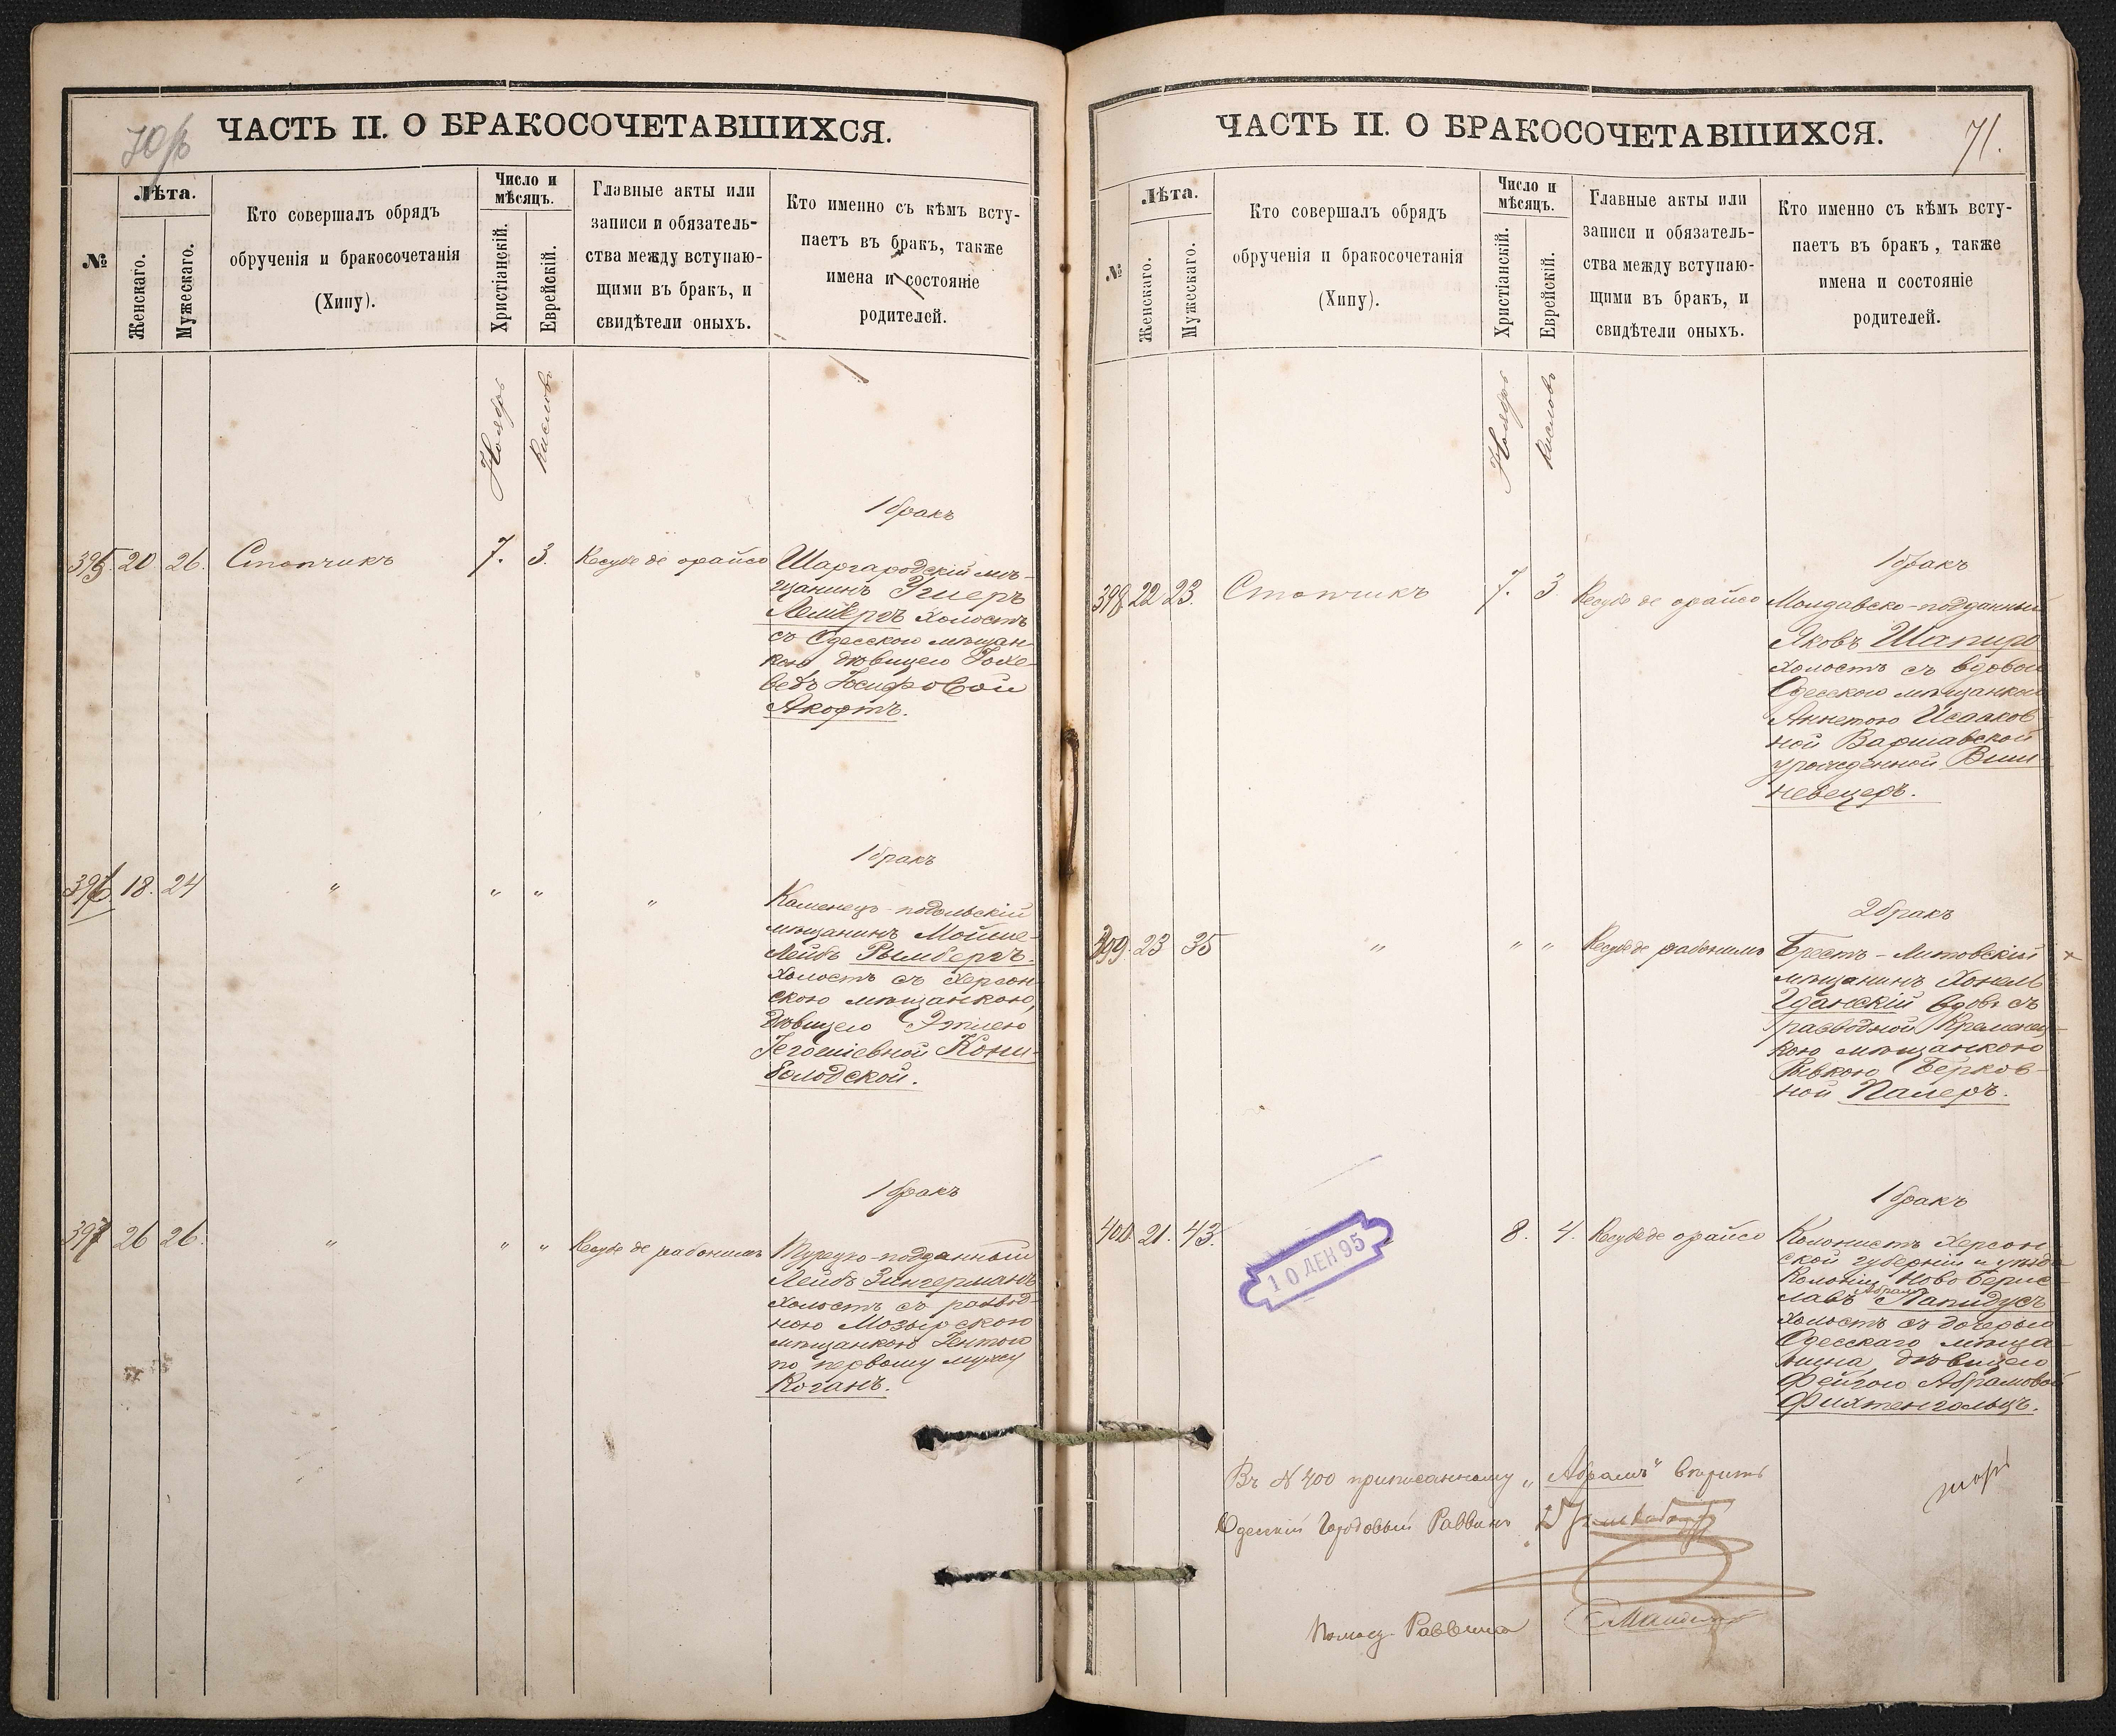 70
ЧАСТЬ II. О БРАКОСОЧЕТАВШИХСЯ.
№
Лѣта.
Женскаго.
Мужескаго.
Кто совершалъ обрядъ
обрученія и бракосочетанія
(Хипу).
Число и
мѣсяцъ.
Христіанскій.
Еврейскій.
Главные акты или
записи и обязатель-
ства между вступаю-
щими въ бракъ, и
свидѣтели оныхъ.
Кто именно съ кѣмъ всту-
паетъ въ бракъ, также
имена и состояніе
родителей.
Ноябрь
Кисловъ
1 бракъ
395. 20. 26. Стопчикъ 7. 3. Кесубе де орайсо
Шаргародскій мѣ-
щанинъ
холостъ
съ Одесскою мѣщан-
кою дѣвицею Iохе-
ведъ Iосифовой
Акофтъ.
1 бракъ
396. 18. 24 " " " "
Каменецъ-подольскій
мѣщанинъ Мойше-
Лейбъ Рымбергъ.
холостъ съ Херсон
скою мѣщанкою,
дѣвицею Этлею
Кони-
болодской.
1 бракъ
397 26 26. " " " Кесубе де рабонимъ
Турецко-подданный
Лейбъ Зингерманъ
холостъ съ развод-
ною Мозырскою
мѣщанкою Iентою
по первому мужу
Коганъ.
ЧАСТЬ II. О БРАКОСОЧЕТАВШИХСЯ.
71.
№
Лѣта.
Женскаго.
Мужескаго.
Кто совершалъ обрядъ
обрученія и бракосочетанія
(Хипу).
Число и
мѣсяцъ.
Христіанскій.
Еврейскій.
Главные акты или
записи и обязатель-
ства между вступаю-
щими въ бракъ, и
свидѣтели оныхъ.
Кто именно съ кѣмъ всту-
паетъ въ бракъ, также
имена и состояніе
родителей.
Ноябрь
Кисловъ
1 бракъ
398. 22 23. Стопчикъ 7. 3 Кесубе де орайсо
Молдавско-подданный
Яковъ Шапиро
холостъ съ вдовой
Одесскою мѣщанкой
Аннетою Исааков
ной Варшавской
урожденной Виш-
невецеръ.
2 бракъ
399. 23 35 " " " Кесубе де рабонимъ
Брестъ-Литовскій
мѣщанинъ Хонель
Гданскій вдовъ съ
разводной Кременец-
кою мѣщанкою
Ривкою Берков-
ной Палеръ.
1 бракъ
400. 21. 43. 8. 4. Кесубе де орайсо
Колонистъ Херсон
ской губерніи и уѣзда
Колоніи Ново Берис-
лавъ Абрамъ Лапидусъ
холостъ съ дочерью
Одесскаго мѣща
нина, дѣвицею
Фейгою Абрамовой
Филтенгольцъ.
10 ДЕК 95
Въ № 400 приписанному „Абрамъ" вѣрить
Одесскій Городовый Раввинъ
Помощ. Раввина